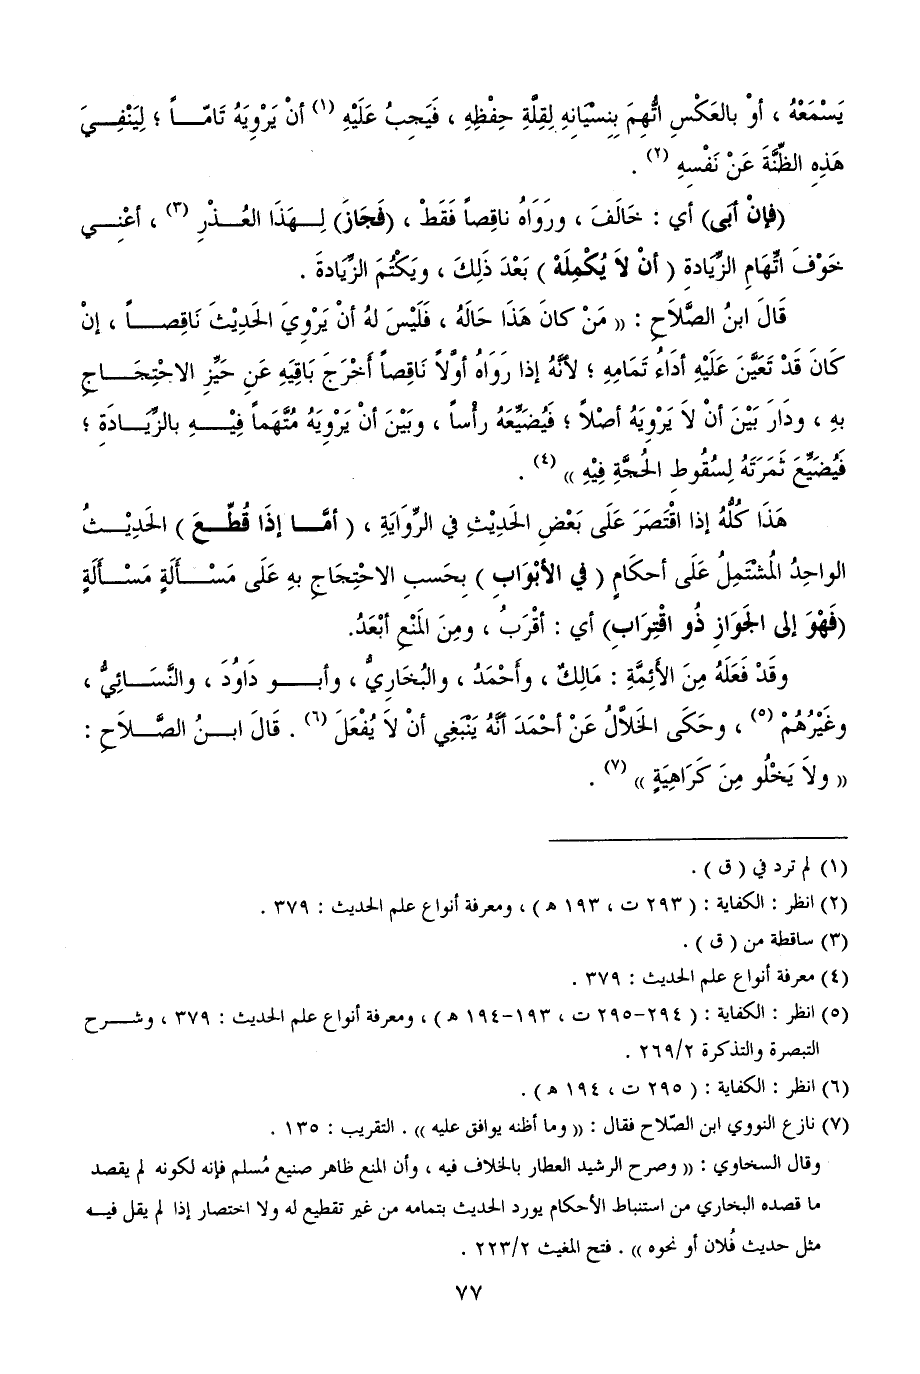 يَسْمَعْهُ ، أوْ بالعَكْسِ اتُّهِمَ بِنِسْيَانِهِ لِقِلَّةِ حِفْظِهِ ، فَيَجِبُ عَلَيْهِ (١) أنْ يَرْوِيَهُ تَامّاً ؛ لِيَنْفِيَ
هَذِهِ الظِّنَّةَ عَنْ نَفْسِهِ (٢) .
(فإنْ أبَى) أي : خَالَفَ ، ورَوَاهُ ناقِصاً فَقَطْ ، (فَجَازَ) لِهَذَا العُذْرِ (٣) ، أعْنِي
خَوْفَ اتِّهَامِ الزِّيَادةِ ( أنْ لاَ يُكْمِلَهْ ) بَعْدَ ذَلِكَ ، ويَكْتُمَ الزِّيَادةَ .
قَالَ ابنُ الصَّلاَحِ : (( مَنْ كانَ هَذَا حَالَهُ ، فَلَيْسَ لهُ أنْ يَرْوِيَ الحَدِيْثَ نَاقِصاً ، إنْ
كَانَ قَدْ تَعَيَّنَ عَلَيْهِ أدَاءُ تَمَامِهِ ؛ لأنَّهُ إذا رَوَاهُ أوَّلاً نَاقِصاً أَخْرَجَ بَاقِيَهِ عَنِ حَيِّزِ الاحْتِجَاجِ
بهِ ، ودَارَ بَيْنَ أنْ لاَ يَرْوِيَهُ أصْلاً ؛ فَيُضَيِّعَهُ رأساً ، وبَيْنَ أنْ يَرْوِيَهُ مُتَّهَماً فِيْهِ بالزِّيَادَةِ ؛
فَيُضَيِّعَ ثَمَرَتَهُ لِسُقُوطِ الحُجَّةِ فِيْهِ )) (٤) .
هَذَا كُلُّهُ إذا اقْتَصَرَ عَلَى بَعْضِ الحَدِيْثِ في الرِّوَايَةِ ، ( أمَّا إذَا قُطِّعَ ) الحَدِيْثُ
الواحِدُ المُشْتَمِلُ عَلَى أحكَامٍ ( في الأبْوَابِ ) بِحَسبِ الاحْتِجَاجِ بهِ عَلَى مَسْأَلَةٍ مَسْأَلَةٍ
(فَهْوَ إلى الجَوَازِ ذُو اقْتِرَابِ) أي : أقْرَبُ ، ومِنَ المَنْعِ أبْعَدُ.
وقَدْ فَعَلَهُ مِنَ الأئِمَّةِ : مَالِكٌ ، وأَحْمَدُ ، والبُخَارِيُّ ، وأبو دَاوُدَ ، والنَّسَائِيُّ ،
وغَيْرُهُمْ (٥) ، وحَكَى الخَلاَّلُ عَنْ أحْمَدَ أنَّهُ يَنْبَغِي أنْ لاَ يُفْعَلَ (٦) . قَالَ ابنُ الصَّلاَحِ :
(( ولاَ يَخْلُو مِنَ كَرَاهِيَةٍ )) (٧) .
(١) لم ترد في ( ق ) .
(٢) انظر : الكفاية : ( ٢٩٣ ت ، ١٩٣ هـ ) ، ومعرفة أنواع علم الحديث : ٣٧٩ .
(٣) ساقطة من ( ق ) .
(٤) معرفة أنواع علم الحديث : ٣٧٩ .
(٥) انظر : الكفاية : ( ٢٩٤-٢٩٥ ت ، ١٩٣-١٩٤ هـ ) ، ومعرفة أنواع علم الحديث : ٣٧٩ ، وشرح
التبصرة والتذكرة ٢٦٩/٢ .
(٦) انظر : الكفاية : ( ٢٩٥ ت ، ١٩٤ هـ ) .
(٧) نازع النووي ابن الصّلاح فقال : (( وما أظنه يوافق عليه )) . التقريب : ١٣٥ .
وقال السخاوي : (( وصرح الرشيد العطار بالخلاف فيه ، وأن المنع ظاهر صنيع مُسلم فإنه لكونه لم يقصد
ما قصده البخاري من استنباط الأحكام يورد الحديث بتمامه من غير تقطيع له ولا اختصار إذا لم يقل فيه
مثل حديث فُلان أو نحوه )) . فتح المغيث ٢٢٣/٢ .
٧٧